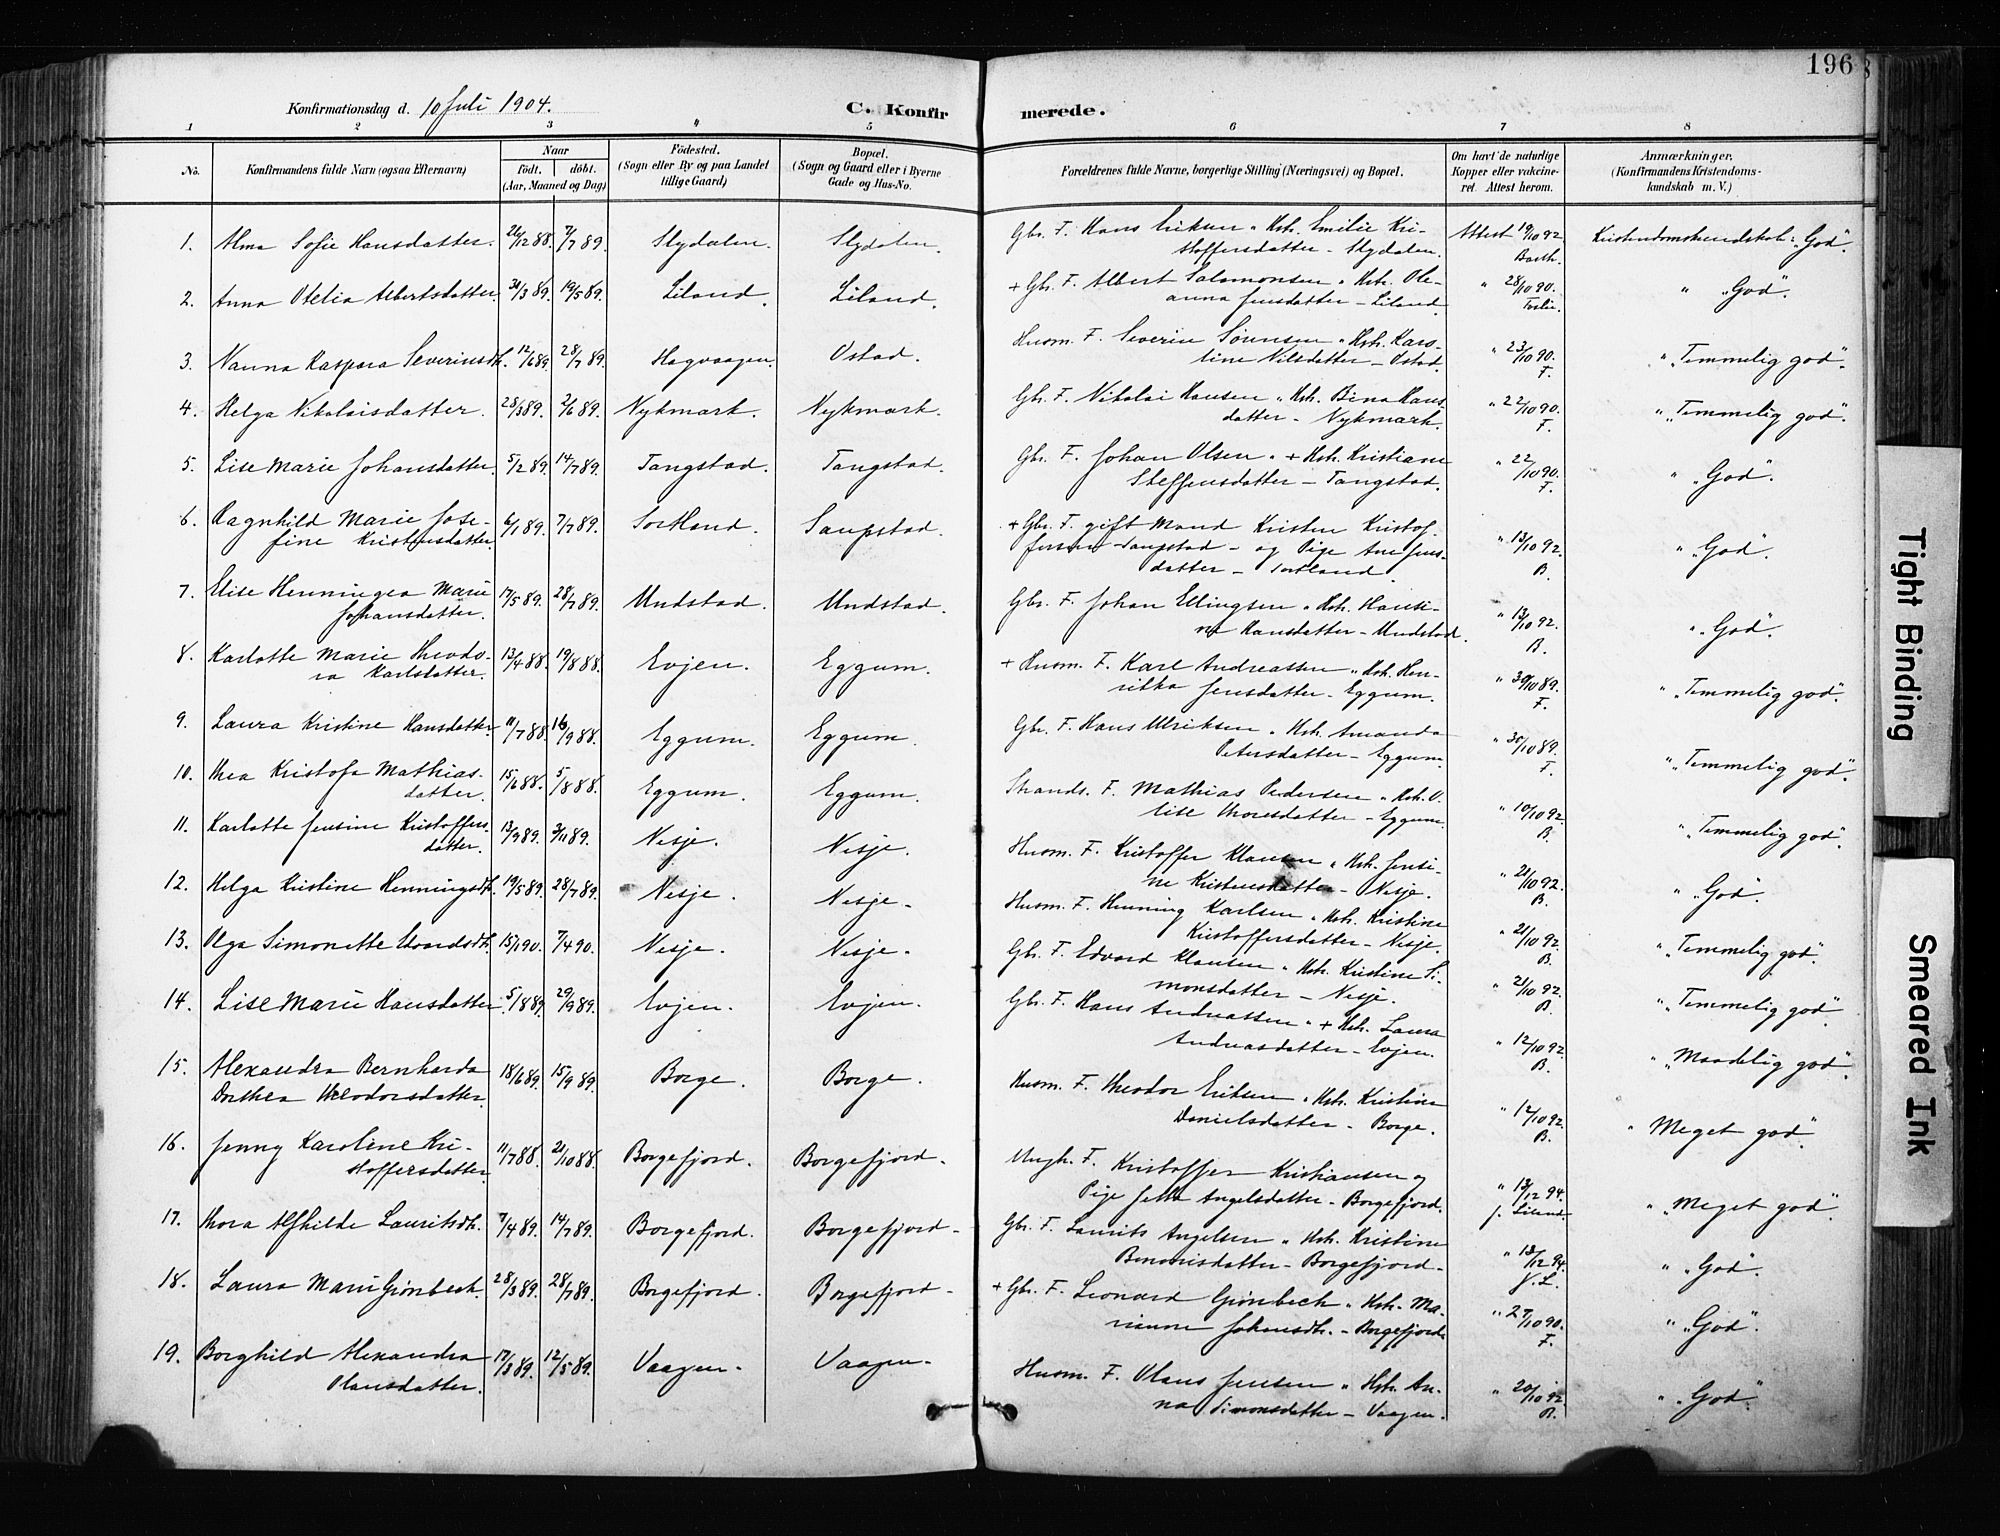 196
Konfirmationsdag d. 10 Juli 1904.
C. Konfir
merede.
1 2 3 4 5 6 7 8
No.
Konfirmandens fulde Navn (ogsaa Efternavn)
Naar
født. døbt.
(Aar, Maaned og Dag)
Fødested.
(Sogn eller By og paa Landet
tillige Gaard)
Bopæl.
(Sogn og Gaard eller i Byerne
Gade og Hus-No.
Forældrenes fulde Navne, borgerlige Stilling (Næringsvei) og Bopæl.
Om havt de naturlige
Kopper eller vakcine-
ret. Attest herom.
Anmærkninger.
(Konfirmandens Kristendoms-
kundskab m. V.)
1. Alma Sofie Hansdatter. 26/12 88. 7/7 89. Slydalen. Slydalen. Gbr. F. Hans Eriksen " Hst. Emilie Kri- Attest 19/10 92. Kristendomskundskab: "God".
stoffersdatter - Slydalen. Barth.
2. Anna Otelia Albertsdatter 31/3 89. 19/5 89. Liland. Liland. + Gbr. F. Albert Salamonsen " Hst. Ole- " 28/10 90. " "God".
anna Jensdatter - Liland.
3. Nanna Kaspara Severinsdt. 12/6 89. 28/7 89. Hagvaagen. Ostad. Husm. F. Severin Sørensen " Hst. Karo- " 23/10 90. " "Temmelig god".
line Nilsdatter - Ostad. F.
4. Helga Nikolaisdatter. 28/3 89. 2/6 89. Nykmark. Nykmark. Gbr. F. Nikolai Hansen " Hst. Bina Hans- " 22/10 90. " "Temmelig god".
datter - Nykmark. F.
5. Lise Marie Johansdatter. 5/2 89. 14/7 89. Tangstad. Tangstad. Gbr. F. Johan Olsen " + Hst. Kristiane " 22/10 90. " "God".
Steffensdatter - Tangstad. F.
6. Ragnhild Marie Jose- 6/1 89. 7/7 89. Sortland. Saupstad. + Gbr. F. gift Mand Kristen Kristof- " 13/10 92. " "God".
fine Kristensdatter. fersen - Saupstad - og Pige Ane Jens- B.
datter - Sortland.
7. Elise Henningea Marie 17/5 89. 28/7 89. Undstad. Undstad. Gbr. F. Johan Ellingsen " Hst. Hansi- " 13/10 92. " "God".
Johansdatter. ne Hansdatter - Undstad. B.
8. Karlotte Marie Theodo- 13/4 88. 19/8 88. Evjen. Eggum. + Husm. F. Karl Andreassen " Hst. Hen- " 30/10 89. " "Temmelig god".
ra Karlsdatter. rikka Jensdatter - Eggum. F.
9. Laura Kristine Hansdatter 11/7 88. 16/9 88. Eggum. Eggum. Gbr. F. Hans Ulriksen " Hst. Amanda " 30/10 89. " "Temmelig god".
Petersdatter - Eggum. F.
10. Thea Kristofa Mathias- 15/6 88. 5/8 88. Eggum. Eggum. Strands. F. Mathias Pedersen " Hst. O- " 10/10 92. " "Temmelig god".
datter. lise Thoresdatter - Eggum. B.
11. Karlotte Jensine Kristoffers- 13/9 89. 3/11 89. Nesje. Nesje. Husm. F. Kristoffer Klausen " Hst. Jensi- " 21/10 92. " "God".
datter. ne Kristensdatter - Nesje. B.
12. Helga Kristine Henningsdt. 19/5 89. 28/7 89. Nesje. Nesje. Husm. F. Henning Karlsen " Hst. Kristine " 21/10 92. " "Temmelig god".
Kristoffersdatter - Nesje. B.
13. Olga Simonette Edvardsdt. 15/1 90. 7/4 90. Nesje. Nesje. Gbr. F. Edvard Klausen " Hst. Kristine Si- " 21/10 92. " "Temmelig god".
monsdatter - Nesje. B.
14. Lise Marie Hansdatter 5/8 89. 29/9 89. Evjen. Evjen. Gbr. F. Hans Andreassen " + Hst. Laura " 12/10 92. " "Maadelig god".
Andreasdatter - Evjen. B.
15. Alexandra Bernharda 18/6 89. 15/9 89. Borge. Borge. Husm. F. Theodor Eriksen " Hst. Kristine " 12/10 92. " Meget god".
Dorthea Theodorsdatter. Danielsdatter - Borge. B.
16. Jenny Karoline Kri- 11/7 88. 21/10 88. Borgefjord. Borgefjord. Ungk. F. Kristoffer Kristiansen og " 18/12 94. " "Meget god".
stoffersdatter. Pige Jette Angelsdatter - Borgefjord. J. Lilend.
17. Thora Alfhilde Lauritsdt. 7/4 89. 14/7 89. Borgefjord. Borgefjord. Gbr. F. Laurits Angelsen " Hst. Kristine " 18/12 94. " "God".
Benonisdatter - Borgefjord. J. L.
18. Laura Marie Grønbech. 28/3 89. 28/7 89. Borgefjord. Borgefjord. + Gbr. F. Leonard Grønbech " Hst. Ma- " 27/10 90. " "God".
rianne Johansdt. - Borgefjord. F.
19. Borghild Alexandra 17/3 89. 12/5 89. Vaagen. Vaagen. Husm. F. Olaus Jensen " Hst. An- " 20/10 92. " "God".
Olausdatter. na Simonsdatter - Vaagen. B.
Tight Binding
Smeared Ink